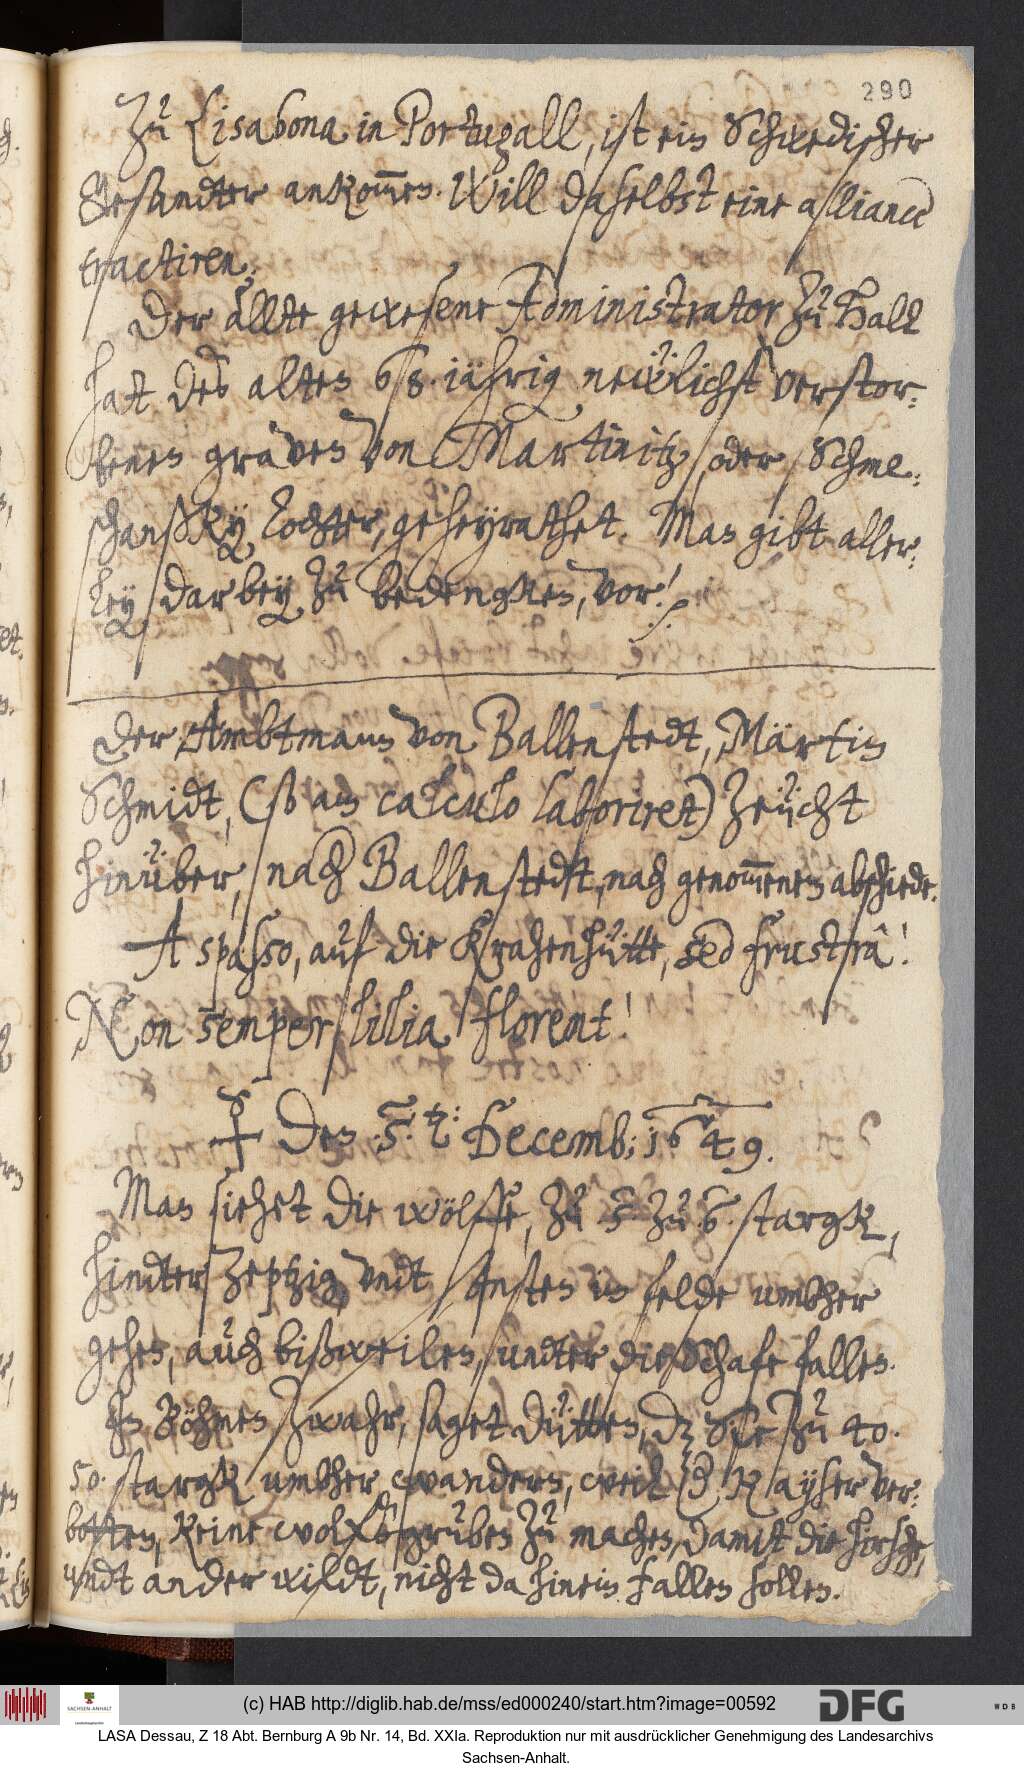 290
Zu Lisabona in Portugall, ist ein Schwedischer
Gesandter ankommen. Will daselbst eine alliance
tractiren.
Der ällte gewesene Administrator zu Hall
hat des alten 68. iährig neẅlichst verstor-
benen graven von Martinitz, oder Schme-
schanßky Tochter, geheyrathet. Man gibt aller-
ley darbey zu bedengken, vor! /.
Der Ambtmann von Ballenstedt, Märtin
Schmidt, (so an calculo laboriret) zeücht
hinüber, nach Ballenstedt, nach genommenem abschiede.
A spasso, auf die Krahenhütte, sed frustrâ!
Non semper lilia florent!
Den 5. t: Decemb: 1649.
Man siehet die wölffe, zu 5. zu 6. stargk,
hindter Zeptzig, vndt sonsten im felde umbher
gehen, auch bißweilen, undter die Schafe fallen.
In Böhmen zwahr, saget Dütten, dz Sie zu 40.
50. stargk umbher wandern, weil der Kayser ver-
botten, keine wolfsgruben zu machen, damit die hirsche,
vndt ander wildt, nicht da hinein fallen sollen.
(c) HAB http://diglib.hab.de/mss/ed000240/start.htm?image=00592
SACHSEN-ANHALT
DFG
WDB
LASA Dessau, Z 18 Abt. Bernburg A 9b Nr. 14, Bd. XXIa. Reproduktion nur mit ausdrücklicher Genehmigung des Landesarchivs
Sachsen-Anhalt.